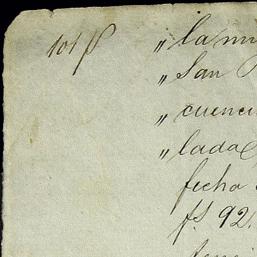 101 p
„ la mi
„ San
„ cuenci
„ lada
fecha
fs. 92.